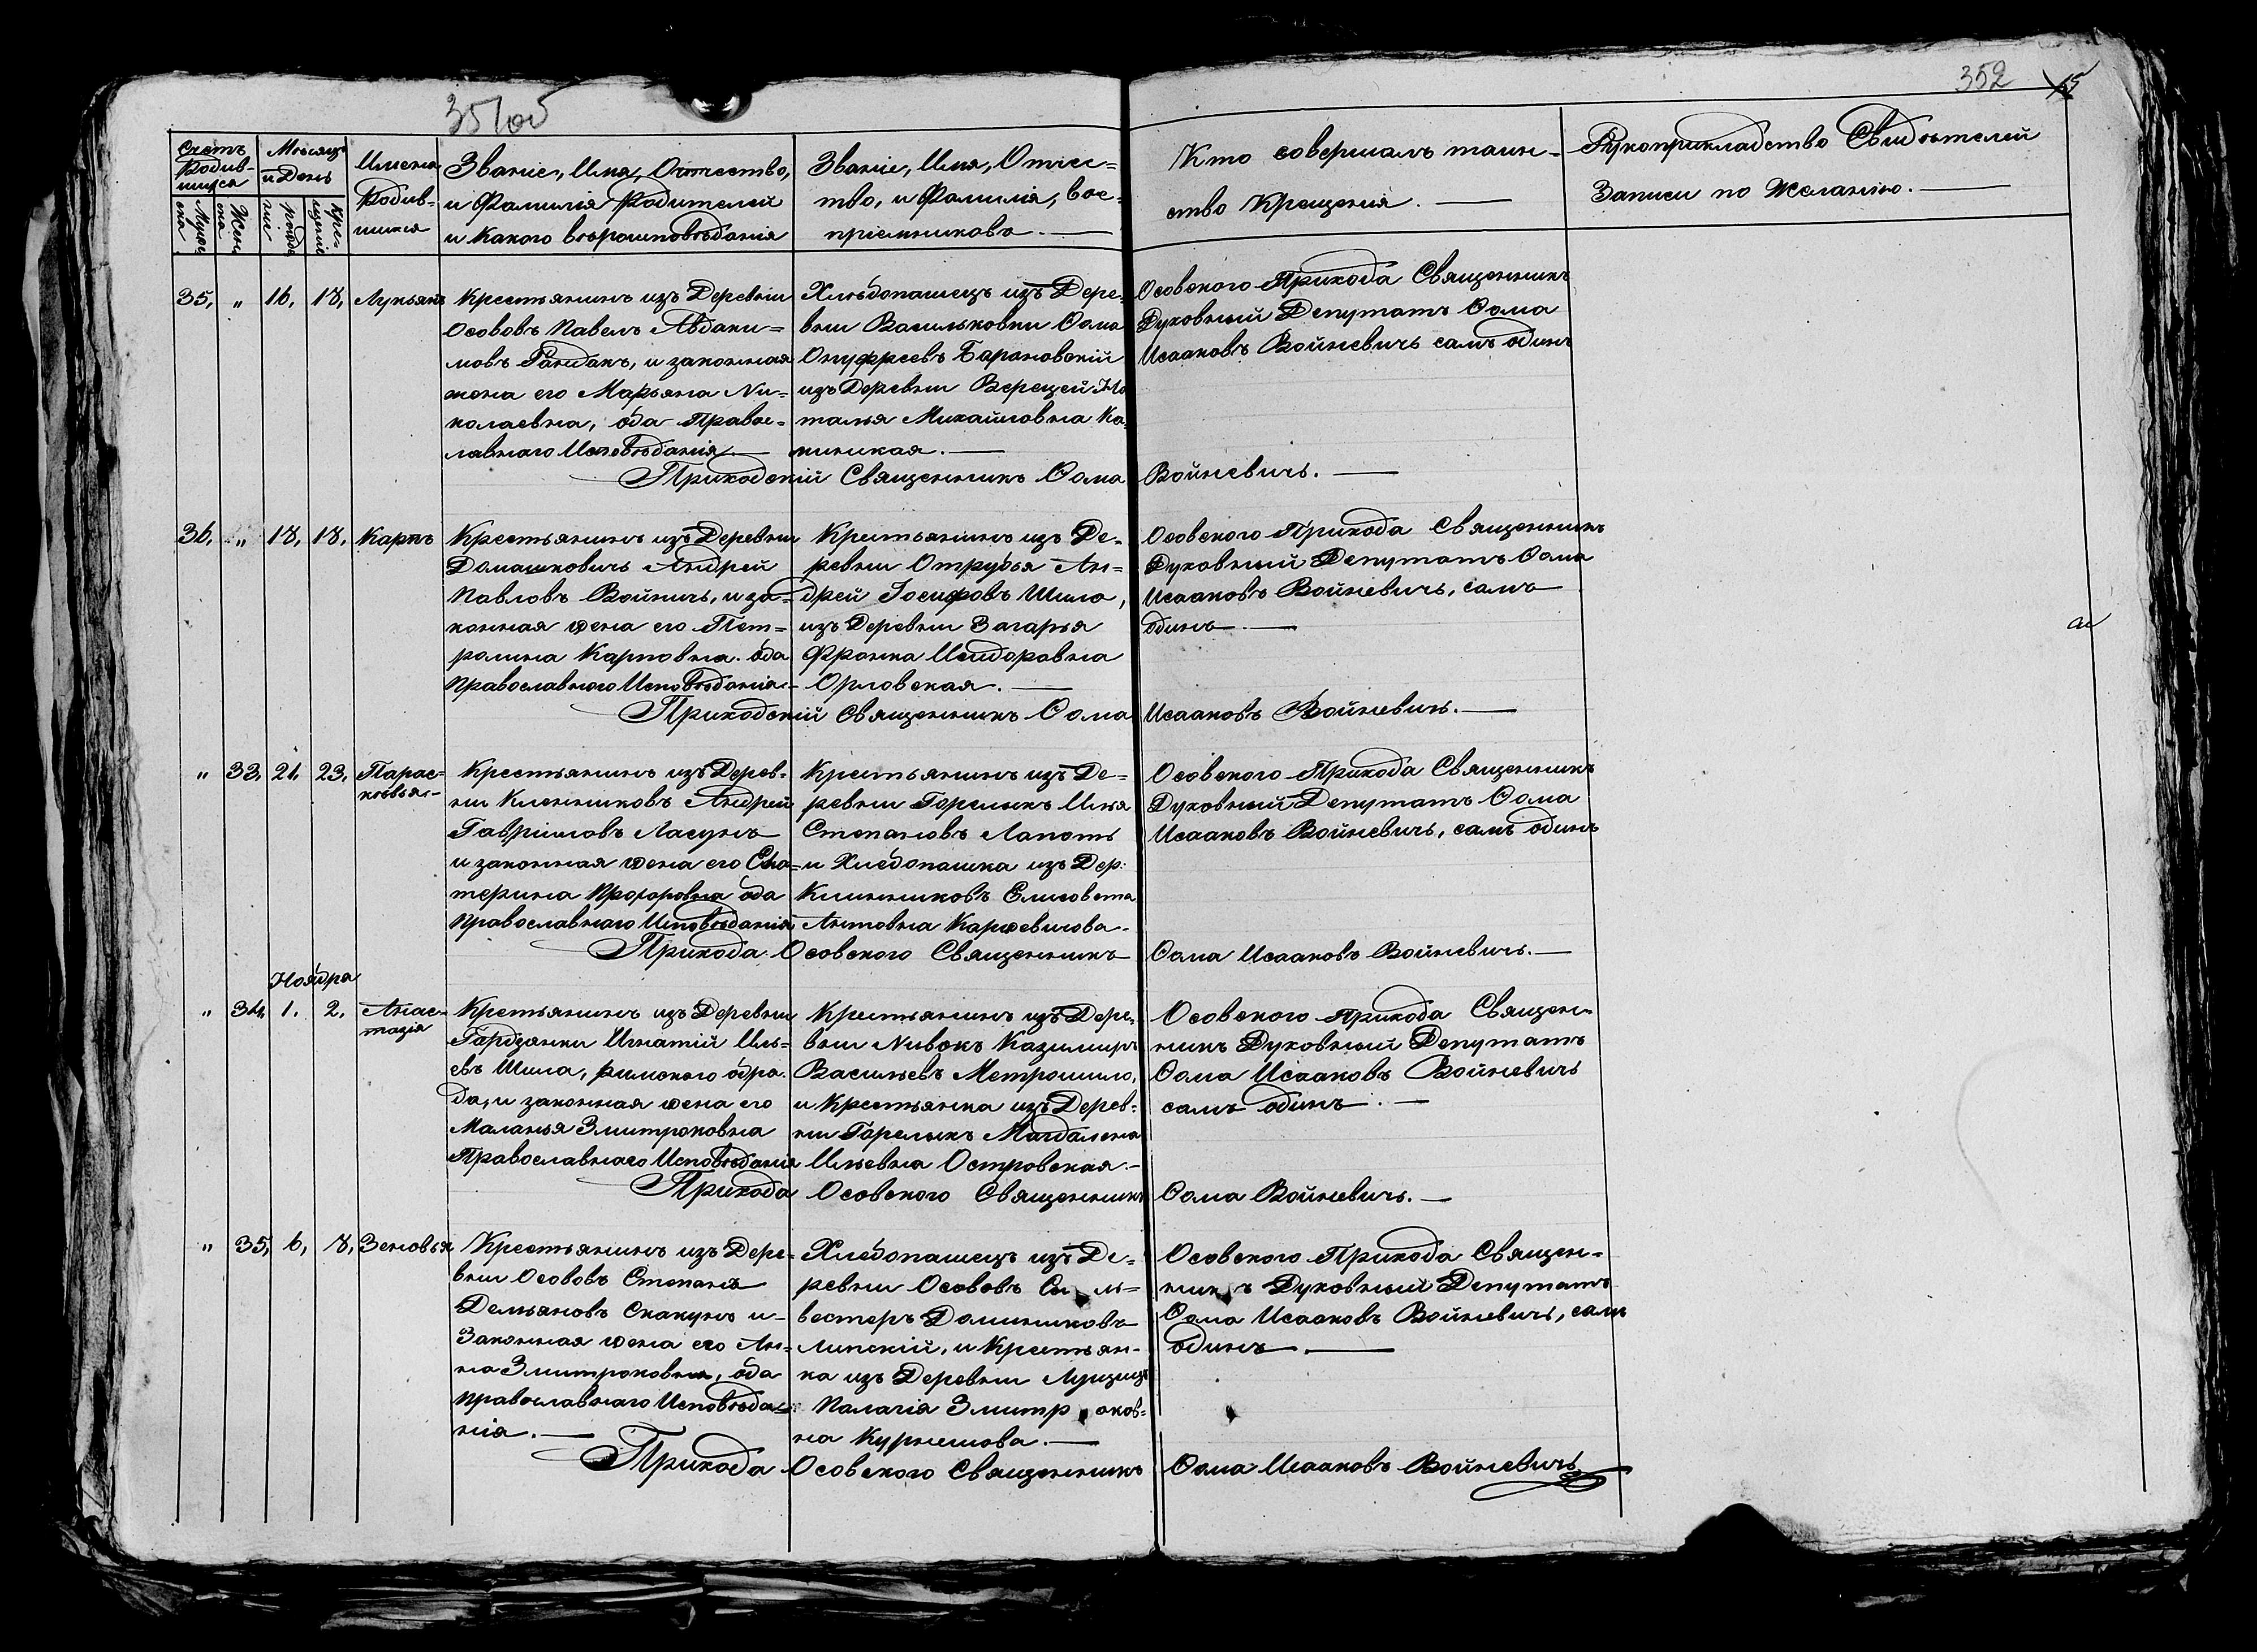 351об
352
15
Счетъ
Родив-
шихся
Мужеска
Женска
Мѣсяцъ
и День
рожденія
Крещенія
Имена
Родив-
шихся
Званіе, Имя, Отчество,
и Фамилія Родителей
и Какого вѣроисповѣданія
Званіе, Имя, Отчес-
тво, и Фамилія, Вос-
пріемниковъ.
Кто совершалъ таин-
ство Крещенія.
Рукоприкладство Свидѣтелей
Записи по Желанію.
35, „ 16, 18, Лукьянъ
Крестьянинъ изъ Деревни
Ососовъ Павелъ Авдаки-
мовъ Гайдакъ, и законная
жена его Марьяна Ни-
колаевна, оба Правос-
лавнаго Исповѣданія
Хлѣбопашецъ изъ Дере-
вни Васильковки Ѳома
Онуфреевъ Барановскій
изъ Деревни Верещей На
талья Михайловна Ка-
минская.
Осовского Прихода Священникъ
Духовный Депутатъ Ѳома
Исааковъ Войневичъ самъ одинъ
Приходскій Священникъ Ѳома Войневичъ.
36, „ 18, 18, Карпъ
Крестьянинъ изъ Деревни
Домашковичь Андрей
Павловъ Войничь, и за-
конная жена его Пет-
ролина Карповна. оба
Православнаго Исповѣданія-
Крестьянинъ изъ Де-
ревни Отрубья Ан-
дрей Іосифовъ Шило,
изъ Деревни Загарья
Франка Исидоровна
Орловская.
Осовского Прихода Священникъ
Духовный Депутатъ Ѳома
Исааковъ Войневичь, самъ
одинъ
Приходскій Священникъ Ѳома Исааковъ Войневичъ.
„ 33, 21, 23, Парас-
кѣвья
Крестьянинъ изъ Дерев-
ни Кленниковъ Андрей
Гавріиловъ Ласунъ
и законная жена его Ека-
терина Прохоровна оба
Православнаго Исповѣданія
Крестьянинъ изъ Де-
ревни Горелыхъ Илья
Степановъ Лапоть
и Хлебопашка изъ Дер:
Клинниковъ Елисовета
Антовна Каржевилова.
Осовского Прихода Священникъ
Духовный Депутатъ Ѳома
Исааковъ Войневичь, самъ одинъ
Прихода Осовского Священникъ Ѳома Исааковъ Войневичъ.
Ноября
„ 34, 1. 2, Анас-
тазія
Крестьянинъ изъ Деревни
Гардзянки Игнатій Иль-
евъ Шила, римского обра-
да, и законная жена его
Маланья Змитроковна
Православнаго Исповѣданія
Крестьянинъ изъ Дере-
вни Нивокъ Казимиръ
Васильевъ Метрошило,
и Крестьянка изъ Дерев-
ни Горелыхъ Магдалена
Ильевна Островская.
Осовского Прихода Священ-
никъ Духовный Депутатъ
Ѳома Исааковъ Войневичь
самъ одинъ.
Прихода Осовского Священникъ Ѳома Войневичъ.
„ 35, 6, 8, Зеновья
Крестьянинъ изъ Дере-
вни Ососовъ Степанъ
Демьяновъ Скакунъ и
Законная жена его Ан-
на Змитроковна, оба
Православнаго Исповѣда-
нія.
Хлебопашецъ изъ Де-
ревни Ососовъ Силь-
вестеръ Доминиковъ
Липскій, и Крестьян-
ка изъ Деревни
Палагія Змитроков-
на Курнешова.
Осовского Прихода Священ-
никъ Духовный Депутатъ
Ѳома Исааковъ Войневичь, самъ
одинъ.
Прихода Осовского Священникъ Ѳома Исааковъ Войневичъ